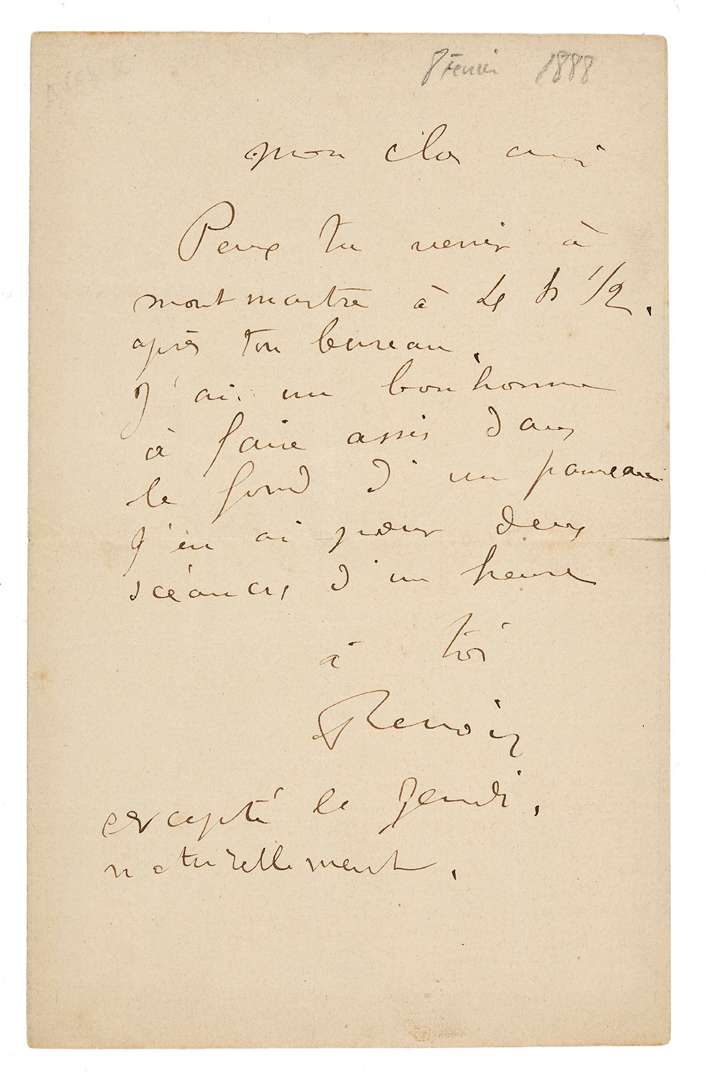 8 Fevrier 1888
mon cher ami
Peux tu venir à
montmartre à 4 h 1/2.
après ton bureau.
J'ai un bonhomme
à faire assis dans
le fond d'un panneau
j'en ai pour deux
scéances d'un heure
à toi
Renoir
excepté le Jeudi.
naturellement.